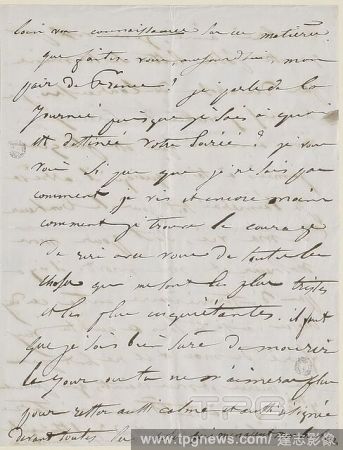 loin vos connaissances sur ce matière
que faites vous, aujourd'hui, mon
pair de France? je parle de la
journée puisque je sais à quoi
est destinée votre soirée? je vous
vois si peu que je ne sais pas
comment je vis et encore moins
comment je trouve le courage
de rire avec vous de toutes les
choses qui me sont les plus tristes
et les plus inquiétantes. il faut
que je sois bien sûre de mourir
le jour où tu ne m'aimeras plus
pour rester aussi calme et aussi résignée
devant toutes les
TPG
www.tpgnews.com / 達志影像